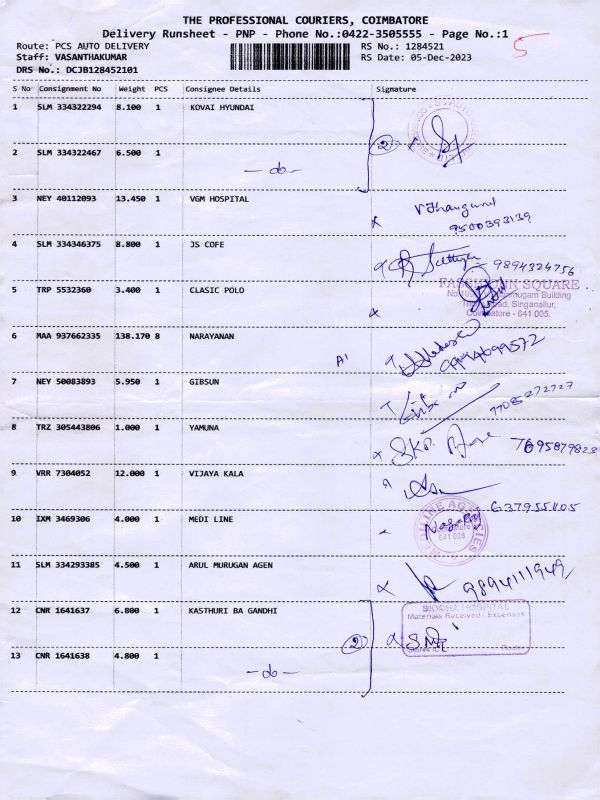 THE PROFESSIONAL COURIERS, COIMBATORE
Delivery Runsheet - PNP - Phone No.:0422-3505555 - Page No.:1
5
Route: PCS AUTO DELIVERY
RS No.: 1284521
Staff: VASANTHAKUMAR
RS Date: 05-Dec-2023
DRS No.: DCJB128452101
S No Consignment No Weight PCS Consignee Details Signature
1 SLM 334322294 8.100 1 KOVAI HYUNDAI
2
2 SLM 334322467 6.500 1
-do-
3 NEY 40112093 13.450 1 VGM HOSPITAL
9500393139
4 SLM 334346375 8.800 1 JS COFE
9894324756
5 TRP 5532360 3.400 1 CLASIC POLO
FASHION SQUARE
Singanallur,
Coimbatore - 641 005.
6 MAA 937662335 138.170 8 NARAYANAN
A1
7 NEY 50083893 5.950 1 GIBSUN
8 TRZ 305443806 1.000 1 YAMUNA
9 VRR 7304052 12.000 1 VIJAYA KALA
10 IXM 3469306 4.000 1 MEDI LINE
641 028
11 SLM 334293385 4.500 1 ARUL MURUGAN AGEN
9894111949
12 CNR 1641637 6.800 1 KASTHURI BA GANDHI
SIDDHA HOSPITAL
Materials Received / Expenses
2
13 CNR 1641638 4.800 1
-do-